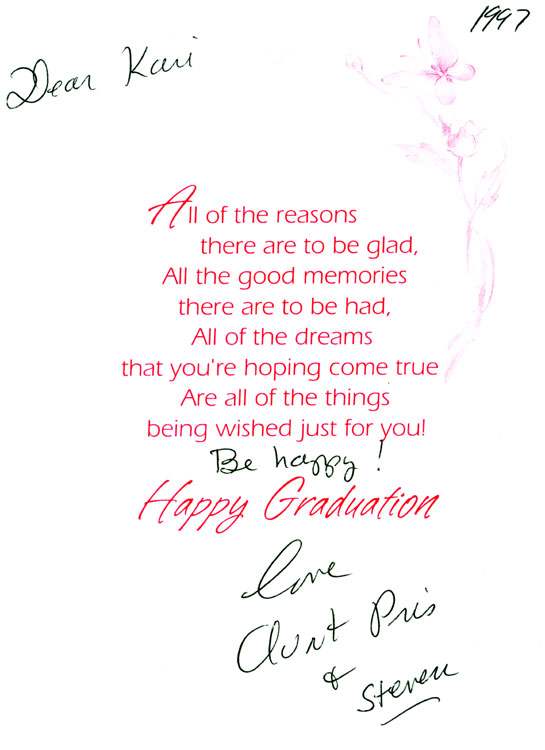 1997
Dear Kari
All of the reasons
there are to be glad,
All the good memories
there are to be had,
All of the dreams
that you're hoping come true
Are all of the things
being wished just for you!
Be happy!
Happy Graduation
Love
Aunt Pris
& Steven